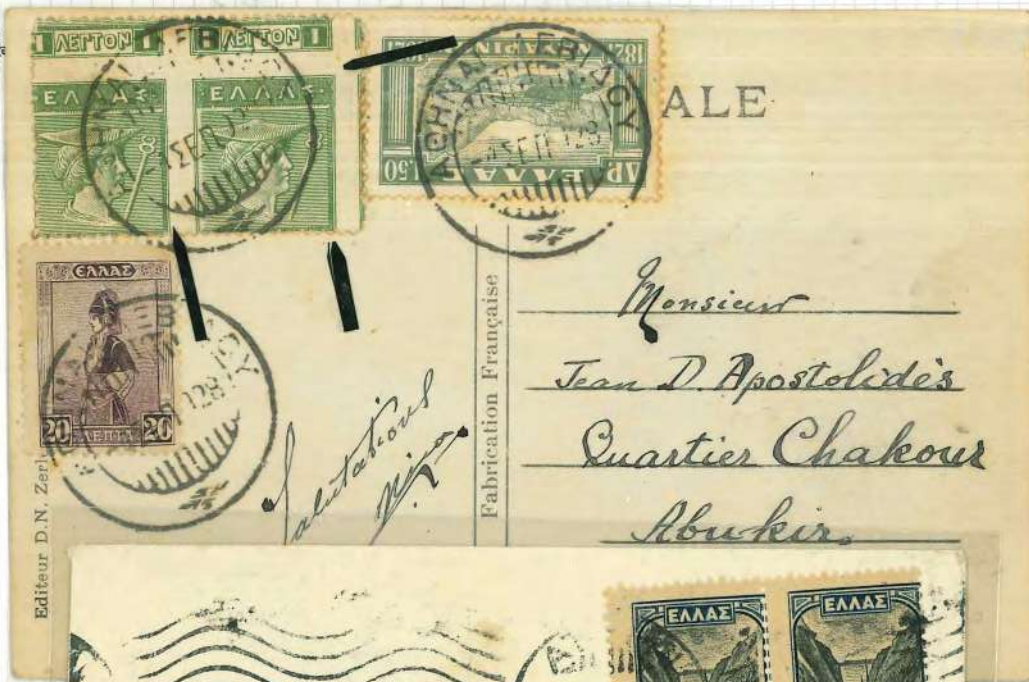 1 ΛΕΠΤΟΝ 1 ΛΕΠΤΟΝ 1
ΕΛΛΑΣ ΕΛΛΑΣ
1827 ΝΑΥΑΡΙΝ
ΕΛΛΑΣ
ΔΡ 1.50
ΑΘΗΝΑΙ ΛΕΒΙΔΟΥ
ΣΕΠ 28
ALE
ΕΛΛΑΣ
20 ΛΕΠΤΑ 20
Editeur D.N. Zerl
Salutations
Fabrication Française
Monsieur
Jean D. Apostolidès
Quartier Chakour
Abukir.
ΕΛΛΑΣ ΕΛΛΑΣ